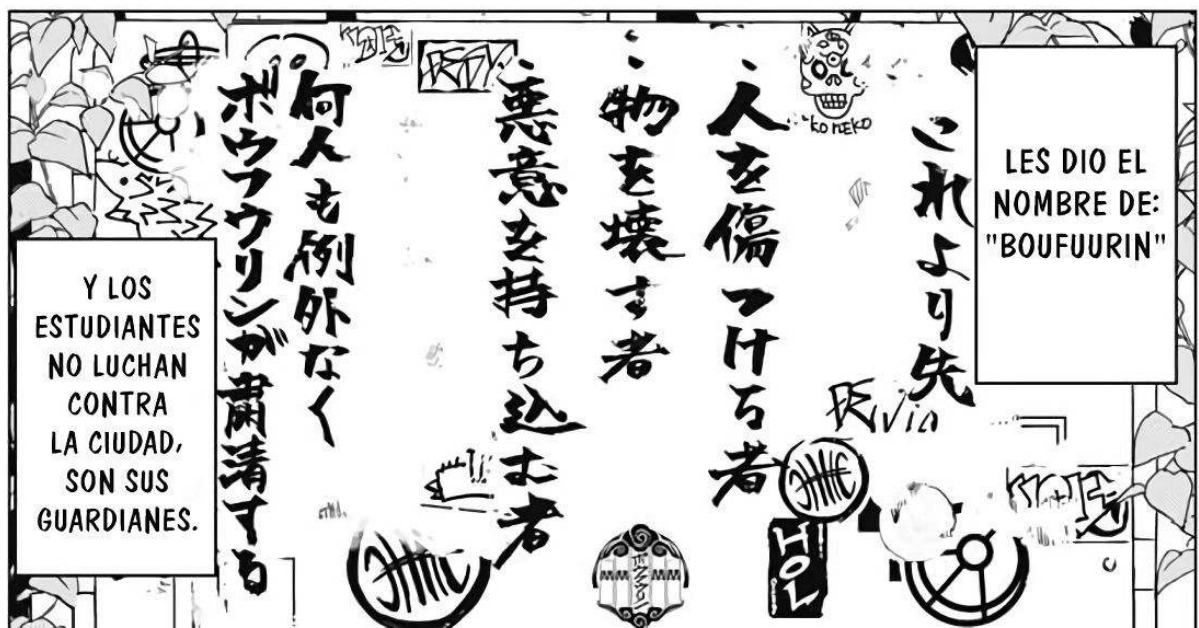 LES DIO EL
NOMBRE DE:
"BOUFUURIN"
これより先
・人を傷つける者
・物を壊す者
・悪意を持ち込む者
何人も例外なく
ボウフウリンが粛清する
Y LOS
ESTUDIANTES
NO LUCHAN
CONTRA
LA CIUDAD,
SON SUS
GUARDIANES.
KONEKO
HOL
ボウフウリン